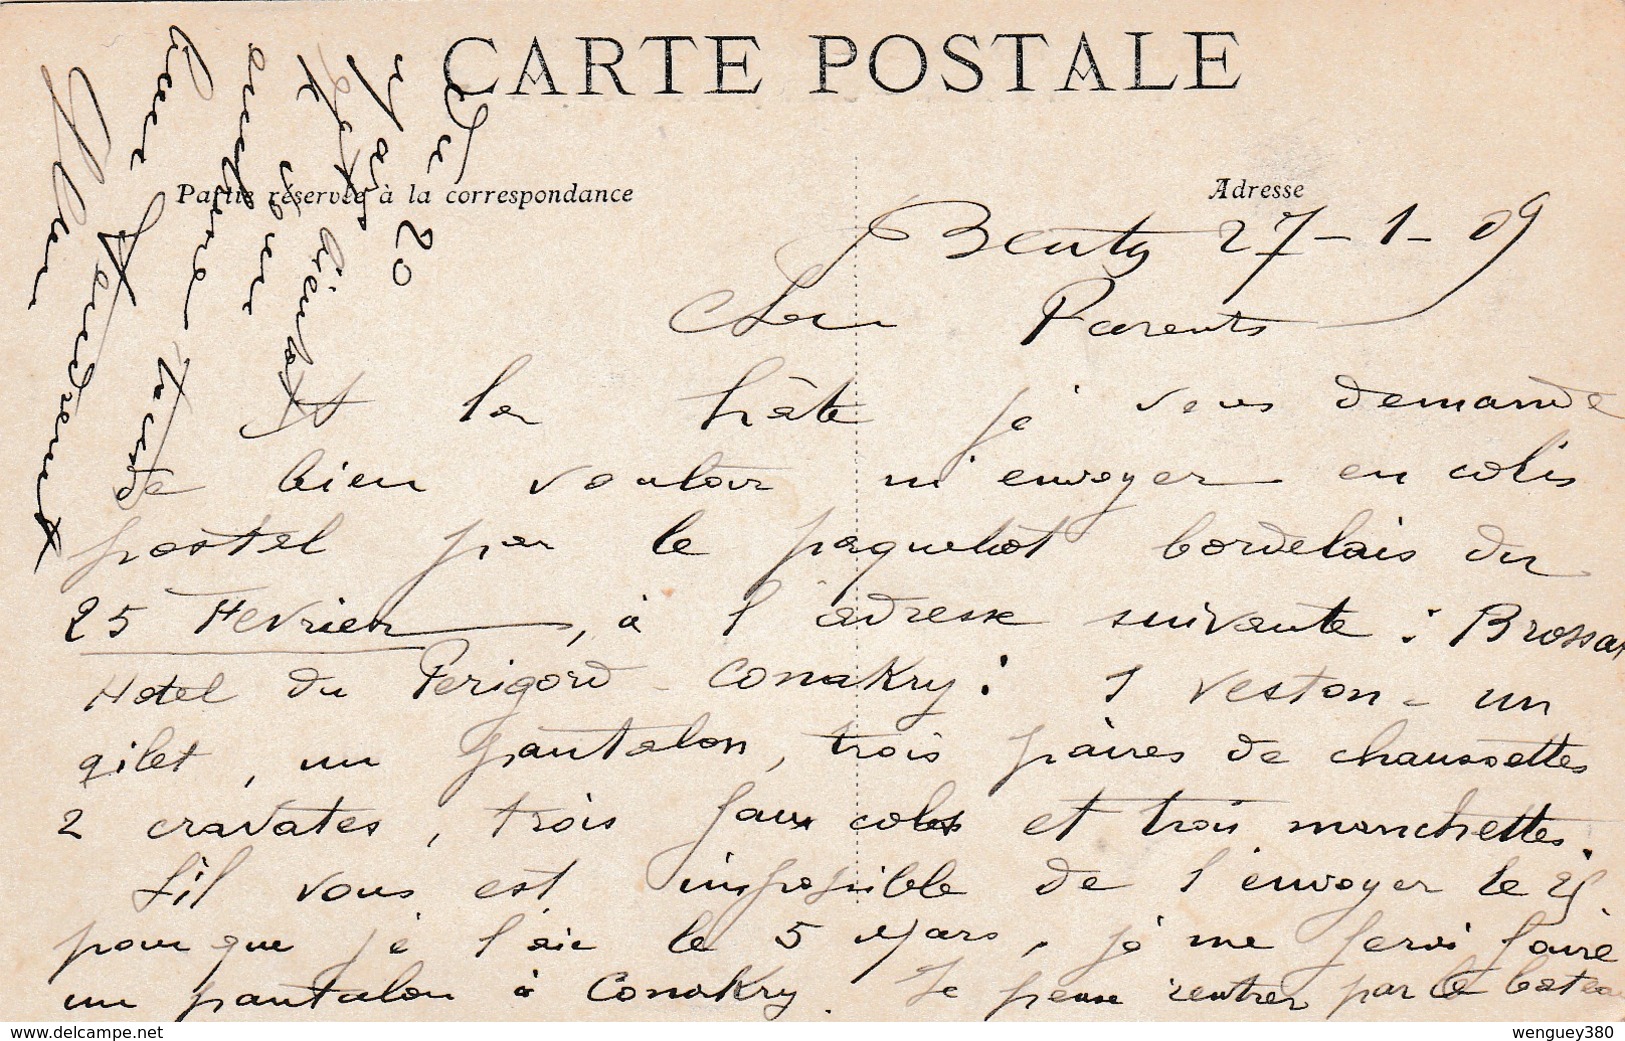 CARTE POSTALE
Partie réservée à la correspondance
Adresse
Benty 27-1-09
Chers Parents
A la hâte je vous demande
de bien vouloir m'envoyer en colis
postal par le paquebot bordelais du
25 Fevrier, à l'adresse suivante : Brossar
Hotel du Perigord - Conakry : 1 veston - un
gilet, un pantalon, trois paires de chaussettes
2 cravates, trois faux cols et trois manchettes.
S'il vous est impossible de l'envoyer le 25
pour que je l'aie le 5 Mars, je me ferai faire
un pantalon à Conakry. Je pense rentrer par le bateau
du 20
Mars
et bientot
vous
tendrement
wenguey380
www.delcampe.net